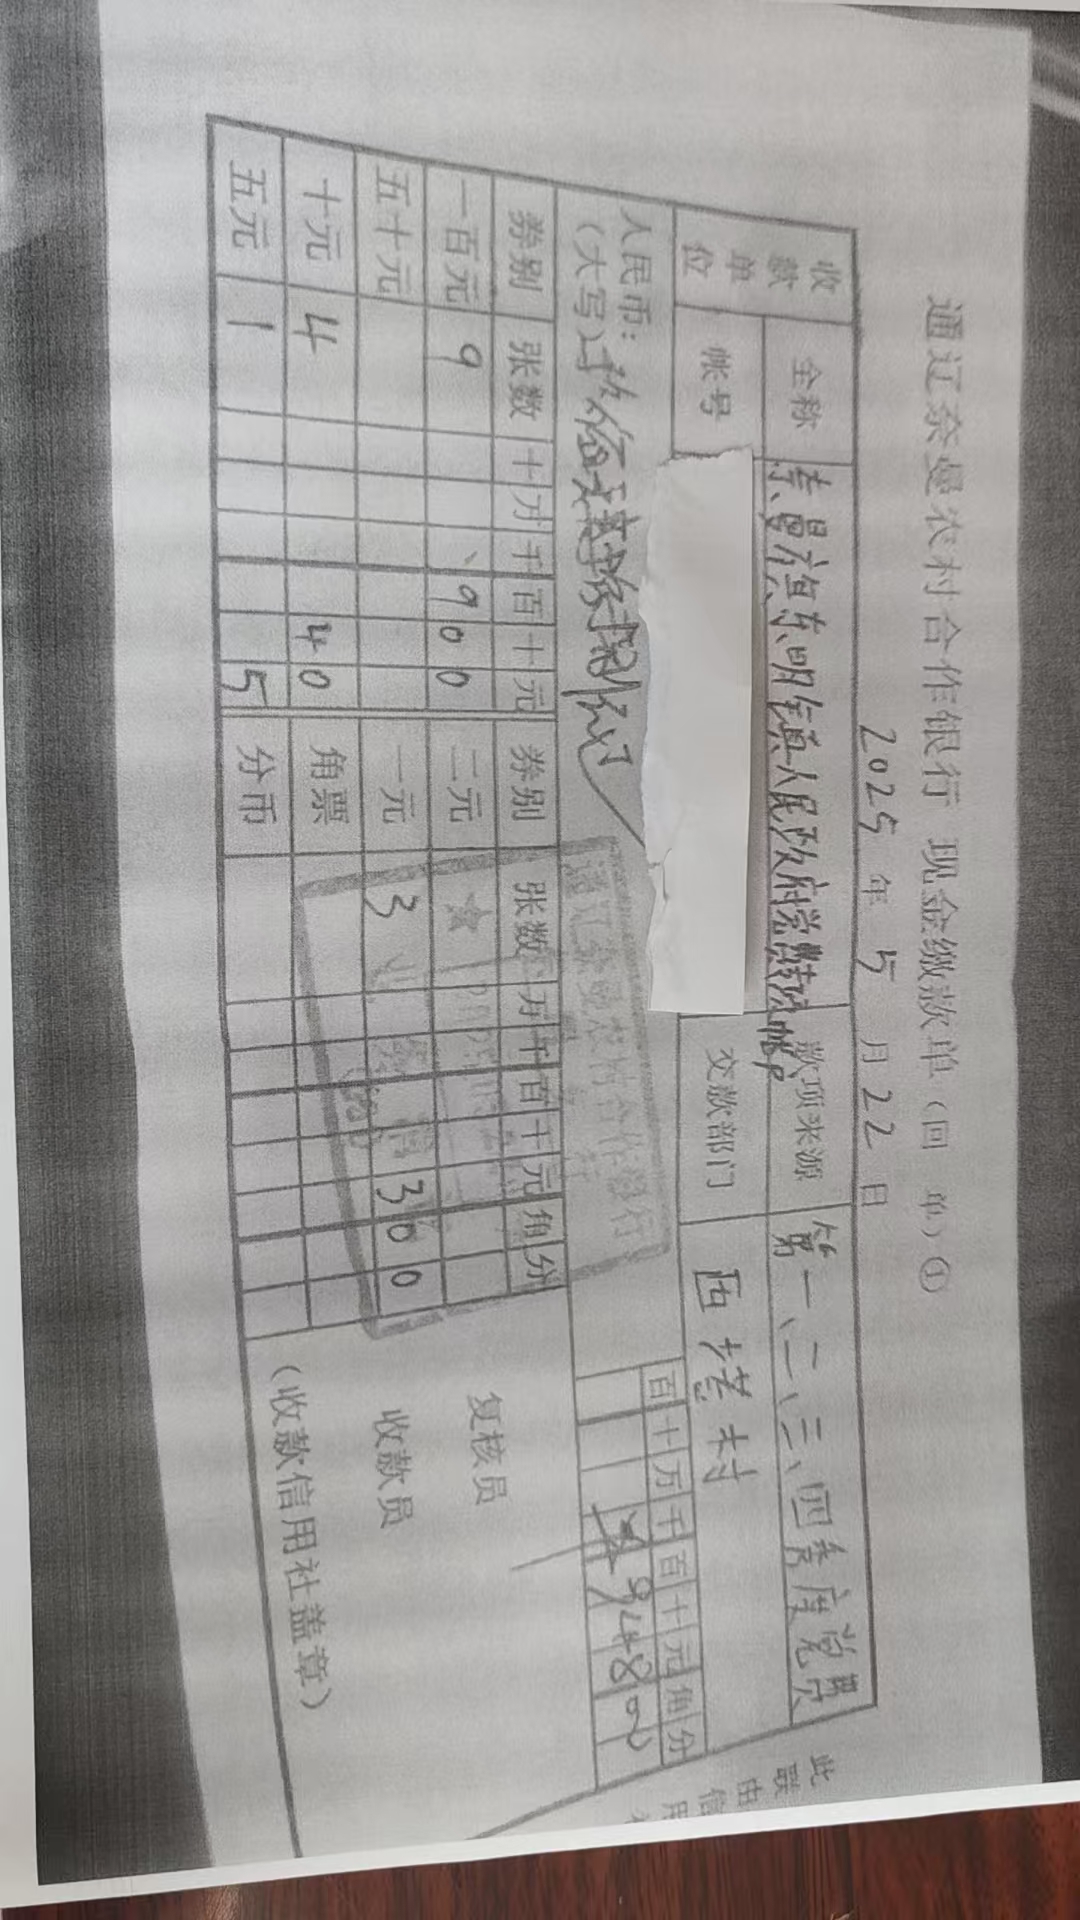 通辽奈曼农村合作银行 现金缴款单（回 单）①
2025 年 5 月 22 日
收款单位 全称 奈曼旗东明镇人民政府党费专户 款项来源 第一、二、三、四季度党费
帐号 交款部门 西塔村
人民币：
（大写）
百 十 万 千 百 十 元 角 分
¥ 9 4 8 0 0
券别 张数 十 万 千 百 十 元 券别 张数 万 千 百 十 元 角 分
一百元 9 9 0 0 二元
五十元 一元 3 3 0 0
十元 4 4 0 角票
五元 1 5 分币
复核员
收款员
（收款信用社盖章）
通辽奈曼农村合作银行
此联由信用